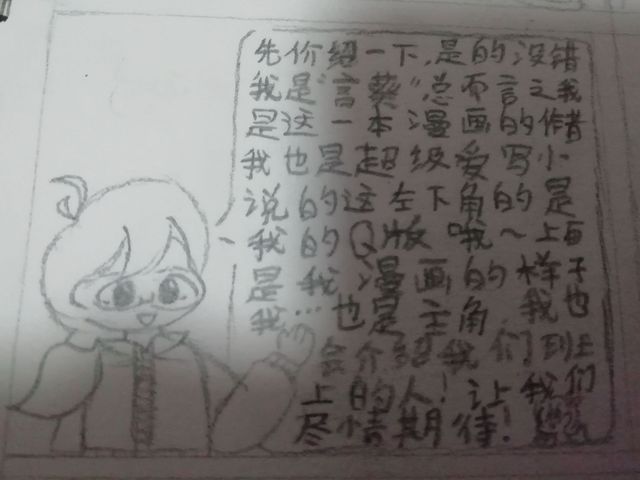 先价绍一下,是的没错
我是"言葵"总而言之我
是这一本漫画的作者
我也是超级爱写小
说的这左下角的是
我的Q版哦～上面
是我漫画的样子
我…也是主角,我也
会介绍我们班
上的人!让我们
尽情期待!